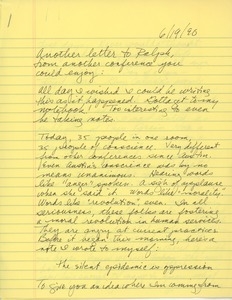 1
6/9/90
Another letter to Ralph,
from another conference you
could enjoy:
All day I wished I could be writing
this as it happened. Gotta get to my
notebook! Too interesting to even
be taking notes.
Today, 35 people in one room,
35 people of conscience. Very different
from other conferences since
conscience ends by no
means unanimous. Hearing words
like "anger" spoken. A sigh of applause
when she said it. Words like "morality."
Words like "revolution", even. In all
seriousness, these folks are fostering
a moral revolution in human services.
They are angry at current practices.
Before it began this morning, here's a
note I wrote to myself:
The silent epidemic is oppression
To give you an idea where I'm coming from